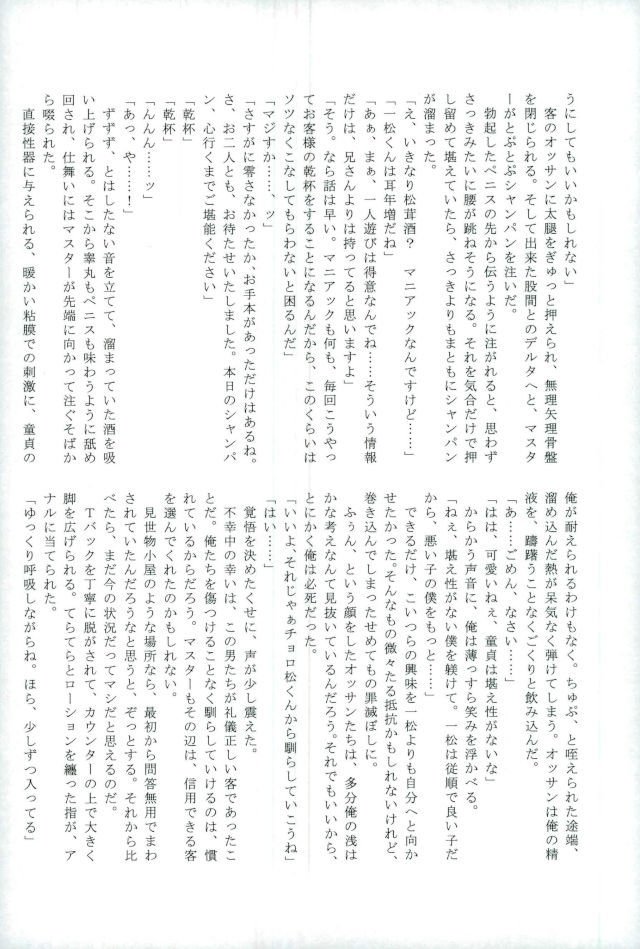 うにしてもいいかもしれない」
客のオッサンに太腿をぎゅっと押えられ、無理矢理骨盤
を閉じられる。そして出来た股間とのデルタへと、マスタ
ーがとぷとぷシャンパンを注いだ。
勃起したペニスの先から伝うように注がれると、思わず
さっきみたいに腰が跳ねそうになる。それを気合だけで押
し留めて堪えていたら、さっきよりもまともにシャンパン
が溜まった。
「え、いきなり松茸酒？　マニアックなんですけど……」
「一松くんは耳年増だね」
「あぁ、まぁ、一人遊びは得意なんでね……そういう情報
だけは、兄さんよりは持ってると思いますよ」
「そう。なら話は早い。マニアックも何も、毎回こうやっ
てお客様の乾杯をすることになるんだから、このくらいは
ソツなくこなしてもらわないと困るんだ」
「マジすか……、ッ」
「さすがに零さなかったか、お手本があっただけはあるね。
さ、お二人とも、お待たせいたしました。本日のシャンパ
ン、心行くまでご堪能ください」
「乾杯」
「乾杯」
「んんん……ッ」
「あっ、や……！」
ずずず、とはしたない音を立てて、溜まっていた酒を吸
い上げられる。そこから睾丸もペニスも味わうように舐め
回され、仕舞いにはマスターが先端に向かって注ぐそばか
ら啜られた。
直接性器に与えられる、暖かい粘膜での刺激に、童貞の
俺が耐えられるわけもなく。ちゅぷ、と咥えられた途端、
溜め込んだ熱が呆気なく弾けてしまう。オッサンは俺の精
液を、躊躇うことなくごくりと飲み込んだ。
「あ……ごめん、なさい……」
「はは、可愛いねぇ、童貞は堪え性がないな」
からかう声音に、俺は薄っすら笑みを浮かべる。
「ねぇ、堪え性がない僕を躾けて。一松は従順で良い子だ
から、悪い子の僕をもっと……」
できるだけ、こいつらの興味を一松よりも自分へと向か
せたかった。そんなもの微々たる抵抗かもしれないけれど、
巻き込んでしまったせめてもの罪滅ぼしに。
ふぅん、という顔をしたオッサンたちは、多分俺の浅は
かな考えなんて見抜いているんだろう。それでもいいから、
とにかく俺は必死だった。
「いいよ、それじゃぁチョロ松くんから馴らしていこうね」
「はい……」
覚悟を決めたくせに、声が少し震えた。
不幸中の幸いは、この男たちが礼儀正しい客であったこ
とだ。俺たちを傷つけることなく馴らしていけるのは、慣
れているからだろう。マスターもその辺は、信用できる客
を選んでくれたのかもしれない。
見世物小屋のような場所なら、最初から問答無用でまわ
されていたんだろうなと思うと、ぞっとする。それから比
べたら、まだ今の状況だってマシだと思えるのだ。
Ｔバックを丁寧に脱がされて、カウンターの上で大きく
脚を広げられる。てらてらとローションを纏った指が、ア
ナルに当てられた。
「ゆっくり呼吸しながらね。ほら、少しずつ入ってる」